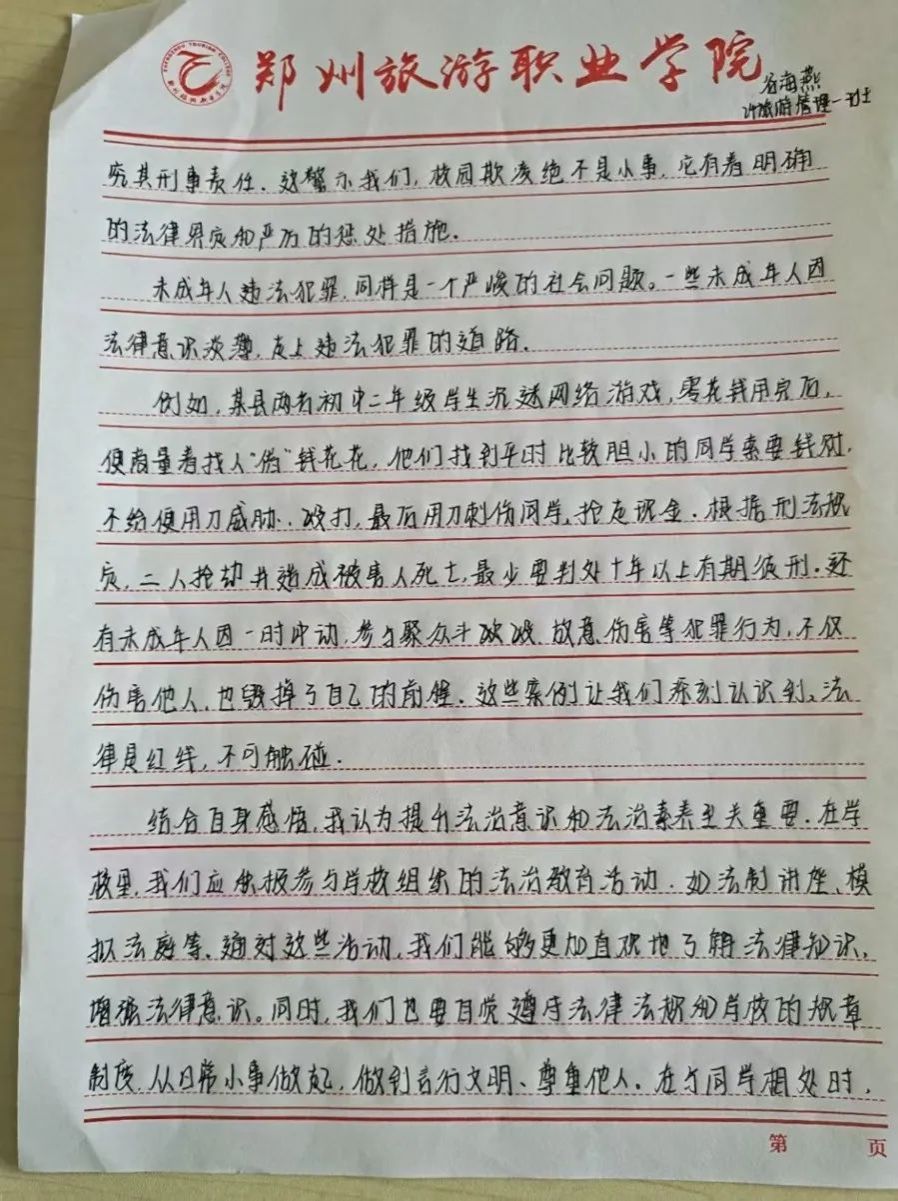 郑州旅游职业学院
海燕
旅游管理一班
究其刑事责任.这警示我们,校园欺凌绝不是小事,它有着明确
的法律界定和严厉的惩处措施.
未成年人违法犯罪,同样是一个严峻的社会问题。一些未成年人因
法律意识淡薄,走上违法犯罪的道路.
例如,某县两名初中二年级学生沉迷网络游戏,零花钱用完后,
便商量着找人“借”钱花花,他们找到平时比较胆小的同学索要钱财,
不给便用刀威胁、殴打,最后用刀刺伤同学,抢走现金.根据刑法规
定,二人抢劫并造成被害人死亡,最少要判处十年以上有期徒刑.还
有未成年人因一时冲动,参与聚众斗殴、故意伤害等犯罪行为,不仅
伤害他人,也毁掉了自己的前程.这些案例让我们深刻认识到,法
律是红线,不可触碰.
结合自身感悟,我认为提升法治意识和法治素养至关重要.在学
校里,我们应积极参与学校组织的法治教育活动.如法制讲座、模
拟法庭等、通过这些活动,我们能够更加直观地了解法律知识,
增强法律意识。同时,我们也要自觉遵守法律法规和学校的规章
制度,从日常小事做起,做到言行文明、尊重他人.在与同学相处时,
第 页